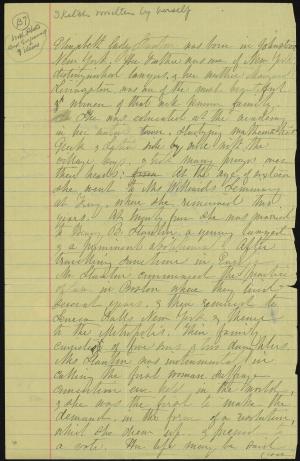 Sketch written by herself
(B7)
with Photo
and Engraving
of
Elizabeth Cady Stanton was born in Johnstown
New York. Her Father was one of New York's
distinguished lawyers, & her mother Margaret
Livingston was one of the most
women of that well known family.
She was educated at the academy
in her native town, studying mathematics
Greek & Latin side by side with the
village boys, & bore many prizes over
their heads. At the age of sixteen
she went to Mrs Willard's Seminary
at Troy, where she remained two
years. At twenty five she was married
to Henry B. Stanton, a young lawyer
& a prominent abolitionist. After
travelling some time in Europe
Mr Stanton commenced the practice
of law in Boston where they lived
several years, & then removed to
Seneca Falls New York & thence
to the Metropolis. Their family
consisted of five sons & two daughters.
Mrs Stanton was instrumental in
calling the first woman suffrage
convention ever held in the world,
& she was the first to make the
demand, in the form of a resolution,
which she drew up, & pressed
a vote. Her life may be said